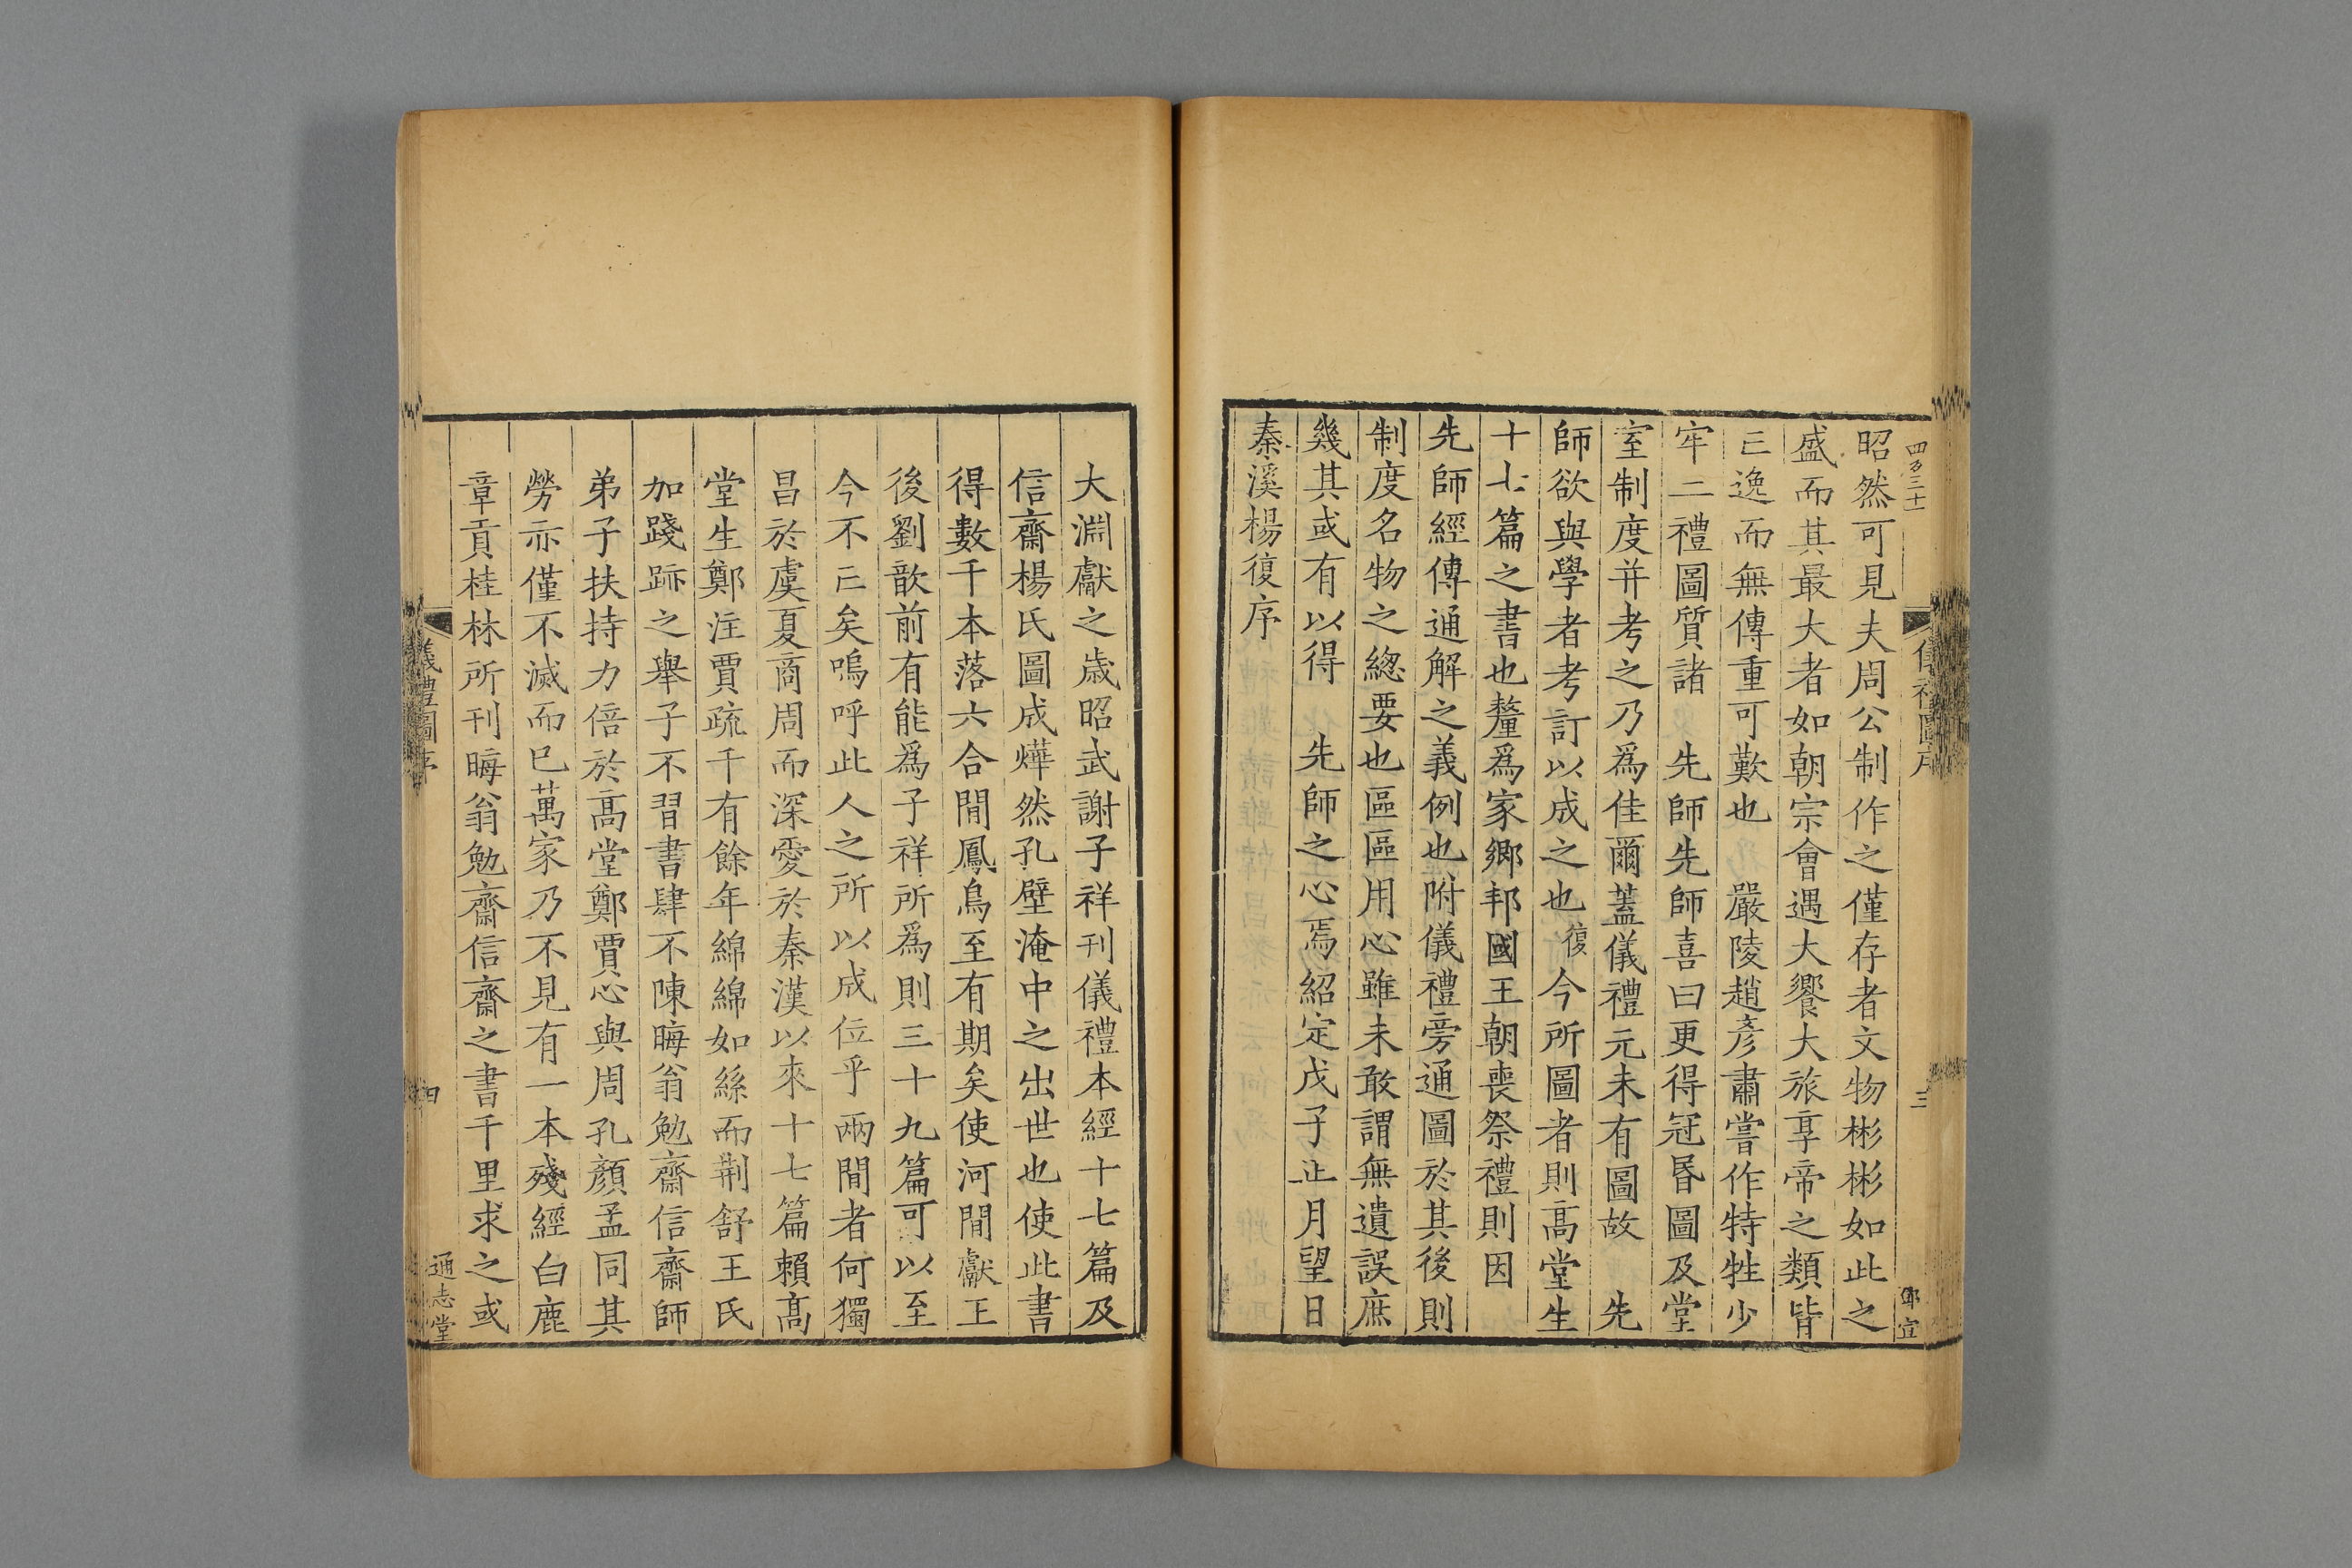 四百三十
儀禮圖序
三
鄧宣
昭然可見夫周公制作之僅存者文物彬彬如此之
盛而其最大者如朝宗會遇大饗大旅享帝之類皆
亡逸而無傳重可歎也　嚴陵趙彥肅嘗作特牲少
牢二禮圖質諸　先師先師喜曰更得冠昏圖及堂
室制度并考之乃爲佳爾蓋儀禮元未有圖故　先
師欲與學者考訂以成之也復今所圖者則高堂生
十七篇之書也釐爲家鄉邦國王朝喪祭禮則因
先師經傳通解之義例也附儀禮旁通圖於其後則
制度名物之緫要也區區用心雖未敢謂無遺誤庶
幾其或有以得　先師之心焉紹定戊子正月望日
秦溪楊復序
大淵獻之歲昭武謝子祥刊儀禮本經十七篇及
信齋楊氏圖成燁然孔壁淹中之出世也使此書
得數千本落六合間鳳鳥至有期矣使河間獻王
後劉歆前有能爲子祥所爲則三十九篇可以至
今不亡矣嗚呼此人之所以成位乎兩間者何獨
昌於虞夏商周而深愛於秦漢以來十七篇賴高
堂生鄭注賈疏千有餘年綿綿如絲而荆舒王氏
加踐跡之舉子不習書肆不陳晦翁勉齋信齋師
弟子扶持力倍於高堂鄭賈心與周孔顏孟同其
勞亦僅不滅而已萬家乃不見有一本殘經白鹿
章貢桂林所刊晦翁勉齋信齋之書千里求之或
儀禮圖序
四
通志堂